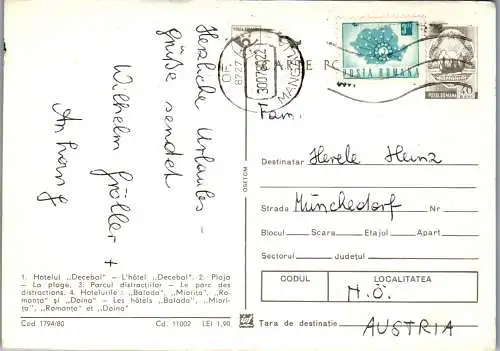 Herzliche Urlaubs -
grüße sendet
Wilhelm Gröller +
CARTE PO
POSTA ROMANA
POSTA ROMANA
40
8727
300782 22
MANGALIA
Fam.
Destinatar Herele Heinz
Strada Münchedorf Nr
Blocul Scara Etajul Apart.
Sectorul Județul
CODUL LOCALITATEA
N.Ö.
Tara de destinație AUSTRIA
OSETCM
1. Hotelul „Decebal" — L'hôtel „Decebal". 2. Plaja
— La plage. 3. Parcul distracțiilor — Le parc des
distractions. 4. Hotelurile: „Balada", „Miorița", „Ro-
manța" și „Doina" — Les hôtels „Balada", „Miori-
ța", „Romanța" et „Doina"
Cod 1794/80 Cd. 11002 LEI 1,90